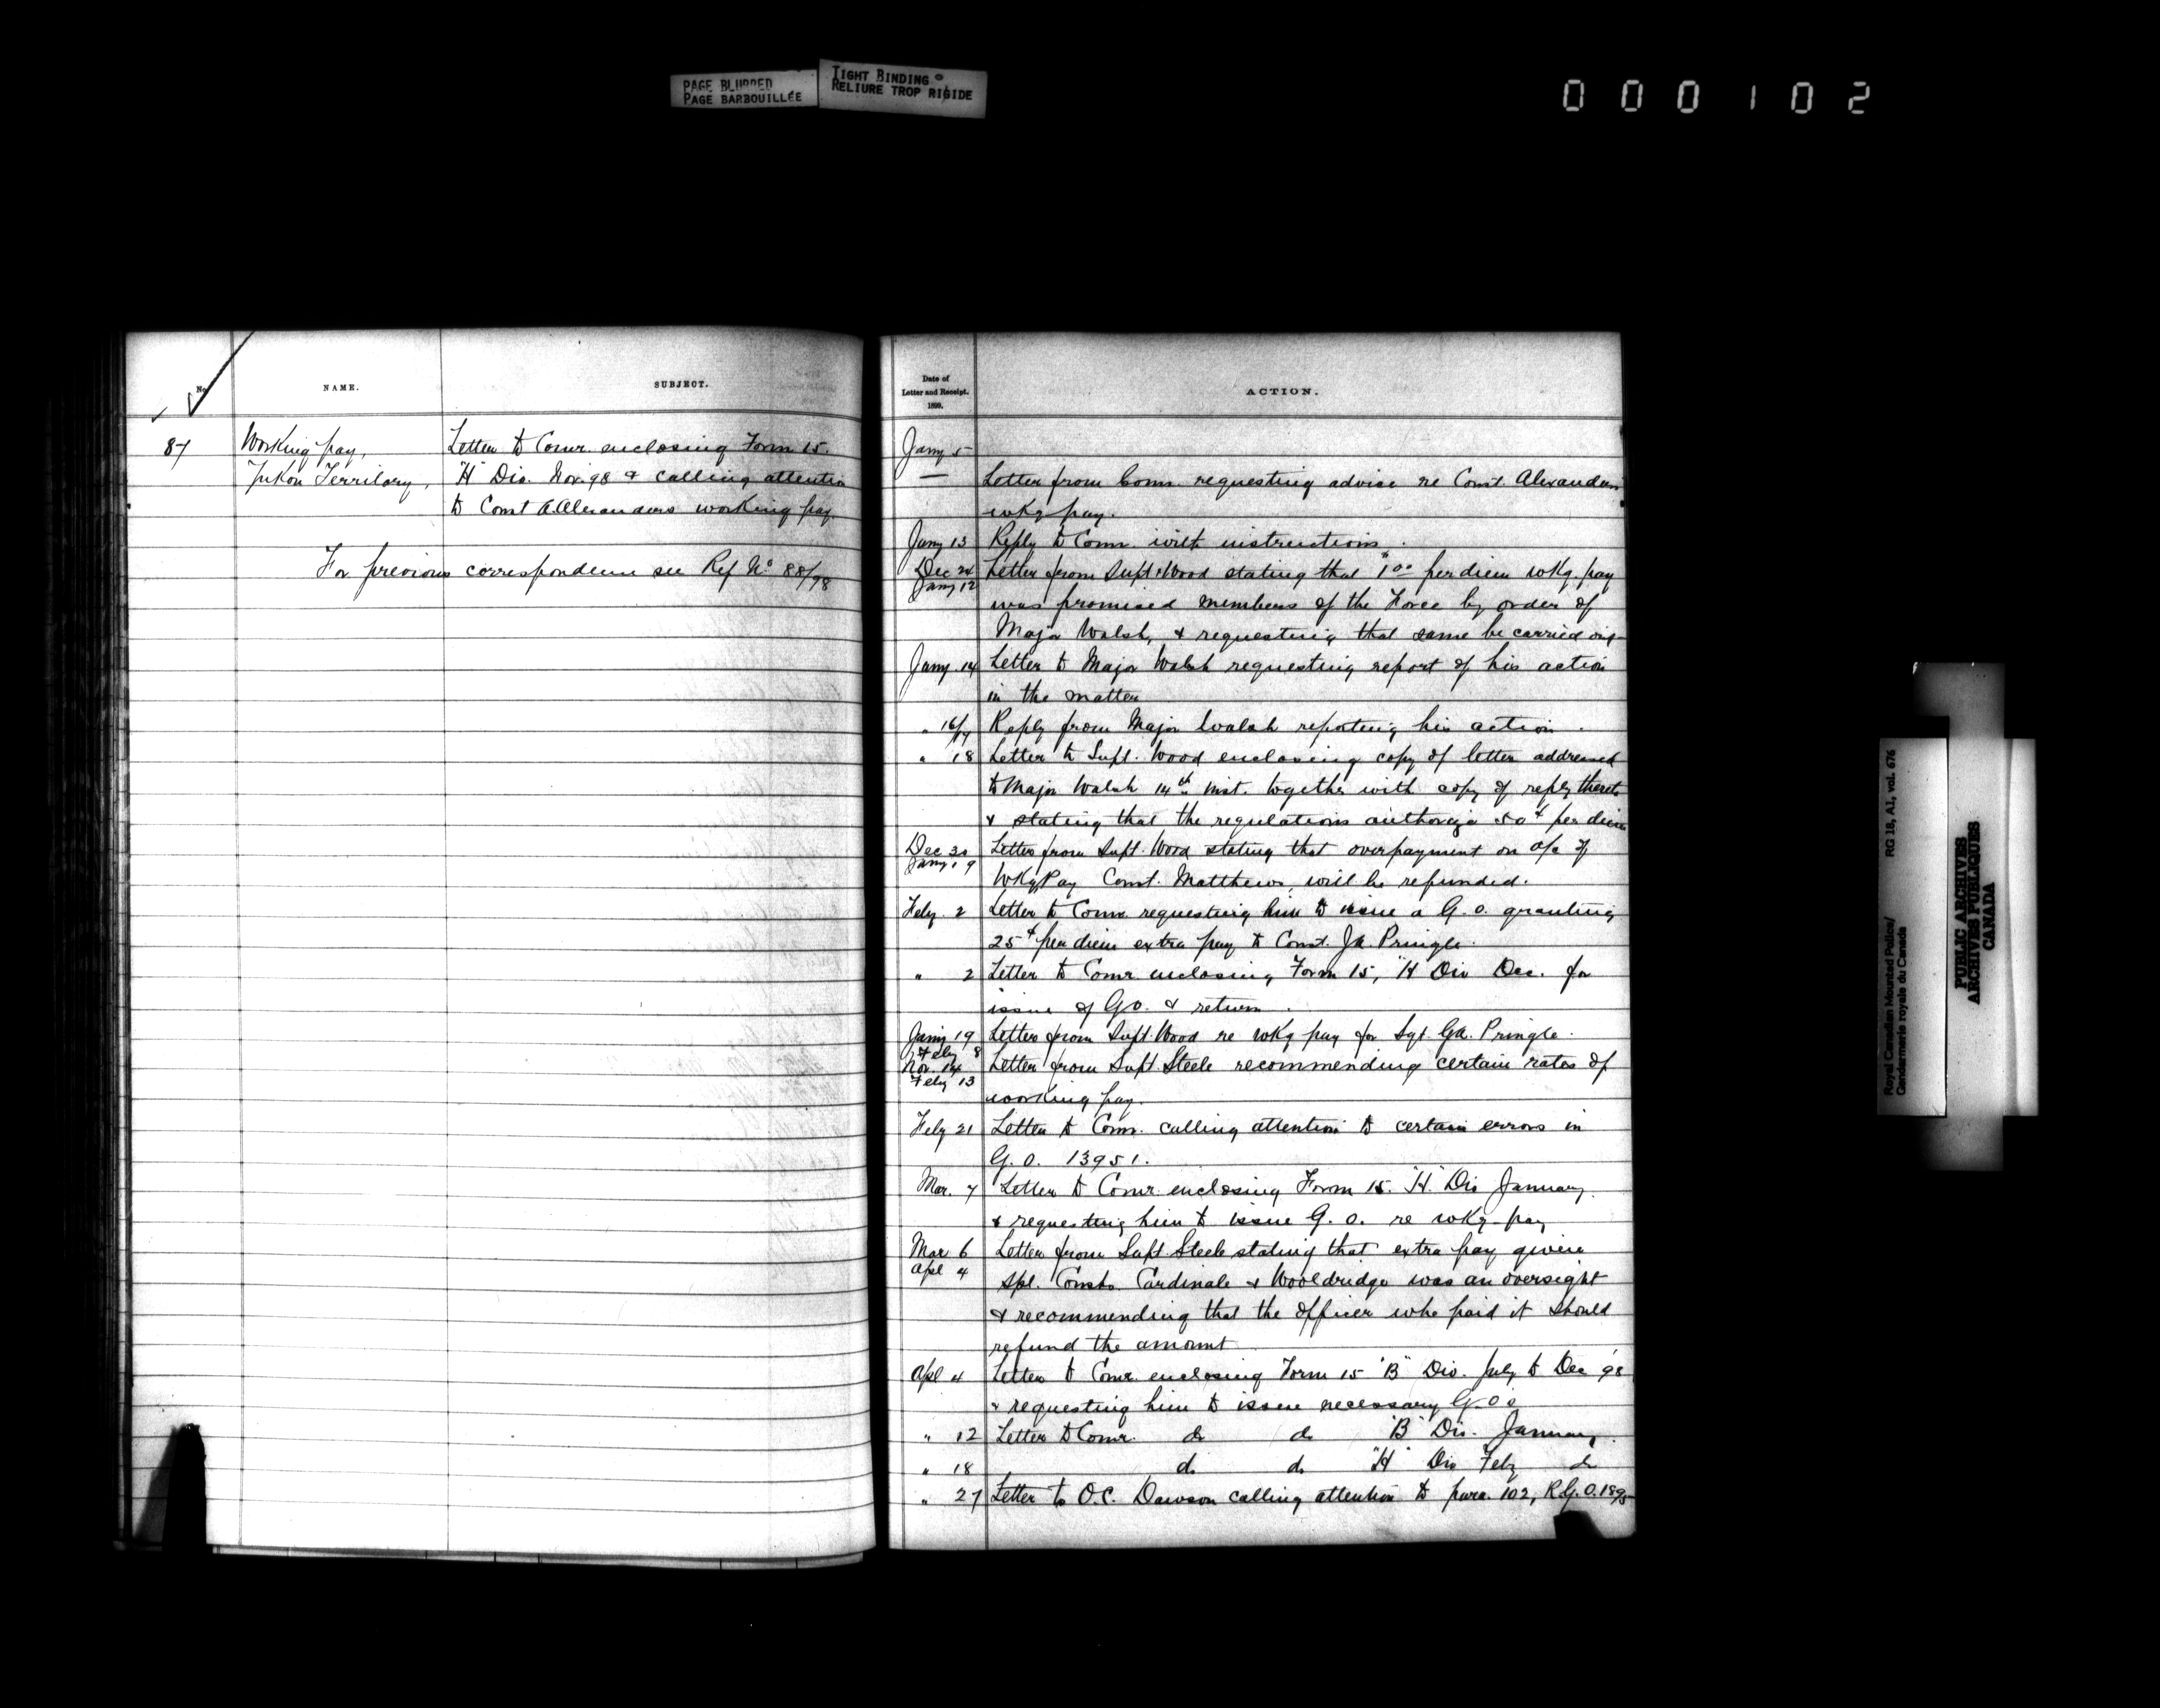 PAGE BLURRED
PAGE BARBOUILLÉE
TIGHT BINDING
RELIURE TROP RIGIDE
000102
No
NAME.
SUBJECT.
87
Working pay,
Letter to Comr. enclosing Form 15.
Yukon Territory,
"H" Div. Nov. 98 & calling attention
to Const A. Alexanders working pay.
For previous correspondence see Ref No 88/98
Date of
Letter and Receipt.
1899.
ACTION.
Jany 5
— Letter from Comr. requesting advice re Const. Alexanders
wkg pay.
Jany 13 Reply to Comr. with instructions.
Dec 24
Jany 12
Letter from Supt. Wood stating that $1.00 per diem wkg. pay
was promised members of the Force by order of
Major Walsh, & requesting that same be carried out
Jany. 14 Letter to Major Walsh requesting report of his action
in the matter
" 16/17 Reply from Major Walsh reporting his action.
" 18 Letter to Supt. Wood enclosing copy of letter addressed
to Major Walsh 14th inst. together with copy of reply thereto
& stating that the regulations authorize 50¢ per diem
Dec 30
Jany. 19
Letter from Supt. Wood stating that overpayment on a/c of
Wkg Pay Const. Matthews, will be refunded.
Feby. 2 Letter to Comr. requesting him to issue a G. O. granting
25¢ per diem extra pay to Const. Pringle.
" 2 Letter to Comr enclosing Form 15, "H" Div Dec. for
issue of GO. & return.
Jany 19
Feby 8
Letter from Supt. Wood re wkg pay for Sgt. GA. Pringle.
Nov. 14
Feby 13
Letter from Supt. Steele recommending certain rates of
working pay.
Feby 21 Letter to Comr. calling attention to certain errors in
G. O. 13951.
Mar. 7 Letter to Comr. enclosing Form 15. "H" Div January
& requesting him to issue G. O. re wkg pay
Mar 6
Apl 4
Letter from Supt. Steele stating that extra pay given
Spl. Consts. Cardinale & Wooldridge was an oversight
& recommending that the officer who paid it should
refund the amount
Apl 4 Letter to Comr. enclosing Form 15 "B" Div. July to Dec '98
& requesting him to issue necessary G.O's
" 12 Letter to Comr. do do "B" Div. January.
" 18 do do "H" Div Feby do
" 27 Letter to O.C. Dawson calling attention to para. 102, R.G.O. 1895
Royal Canadian Mounted Police/
Gendarmerie royale du Canada
RG 18, A1, vol. 676
PUBLIC ARCHIVES
ARCHIVES PUBLIQUES
CANADA